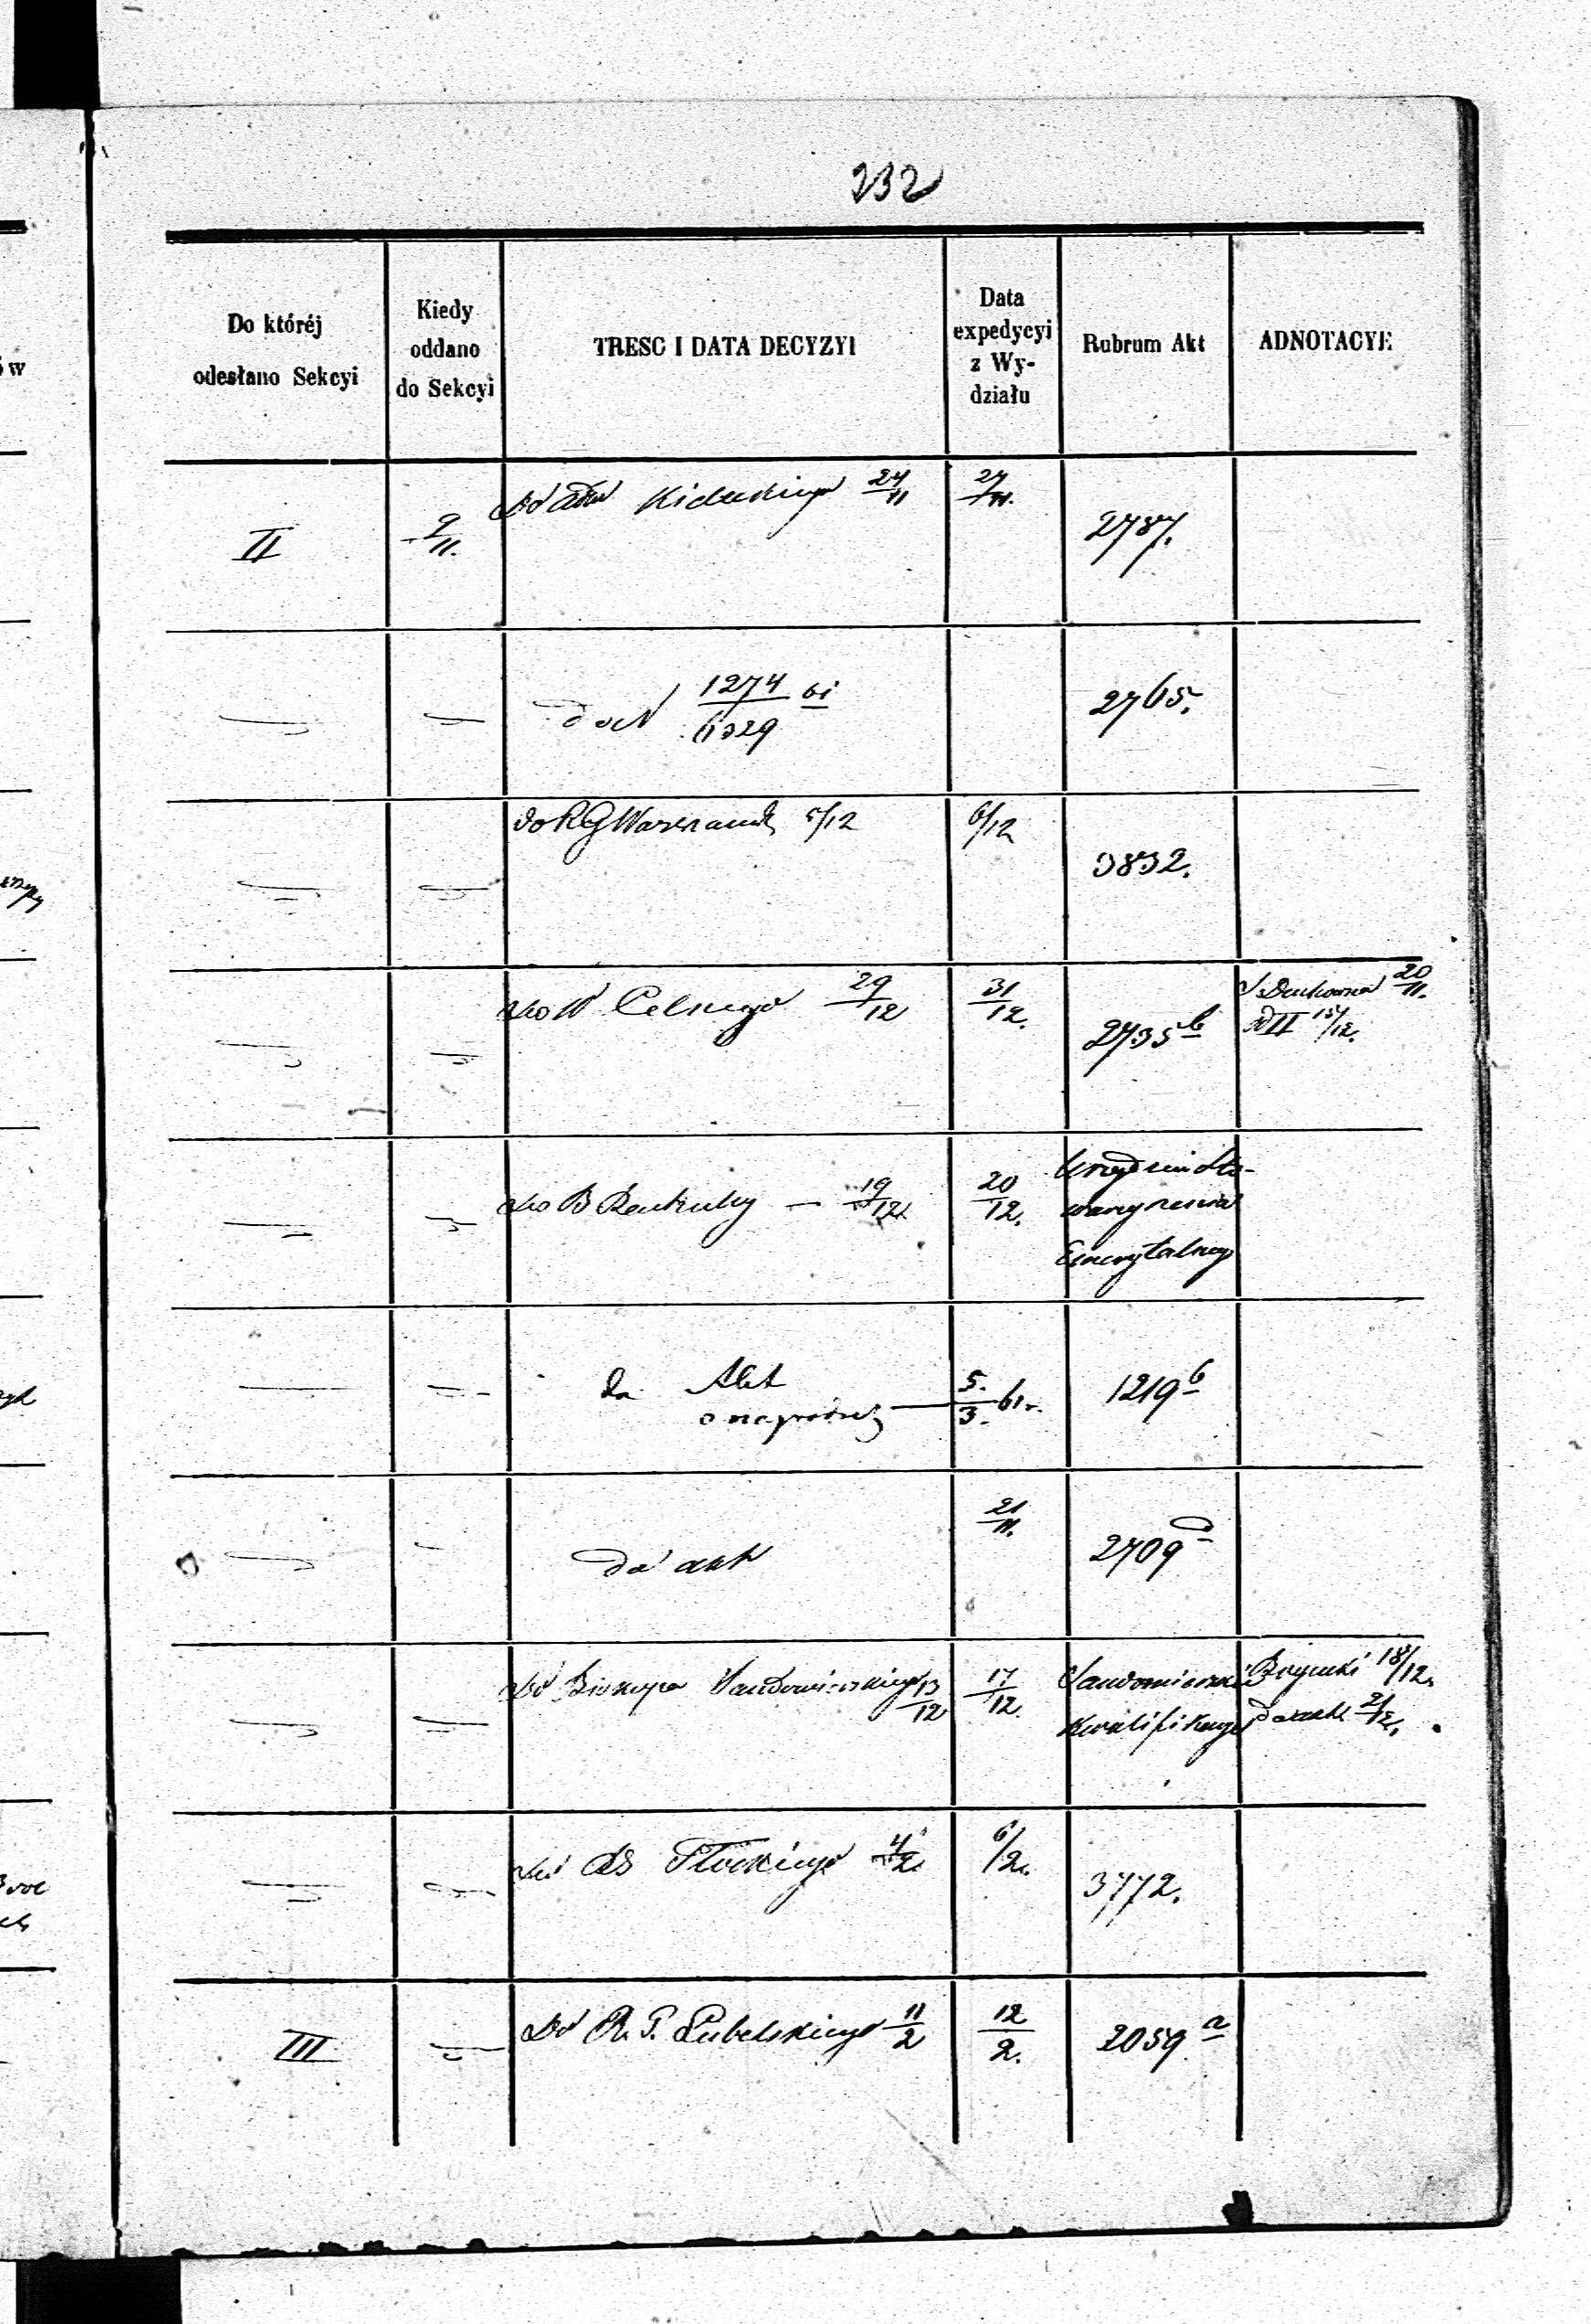 232
Do któréj
odesłano Sekcyi
Kiedy
oddano
do Sekcyi
TRESC I DATA DECYZYI
Data
expedycyi
z Wy-
działu
Rubrum Akt
ADNOTACYE
II
9/11.
Do 24/11
27/11.
2787.
do N 1274/6329 61
2765.
do RG Warszawsk 5/12
6/12
3832.
do W Celnego 29/12
31/12.
2735 b
S Duchowna 20/11.
II 15/12.
do B Kontroly — 19/12
20/12.
Emerytalnego
do Akt
o nagrodzie
5./3. 61 r.
1219 b
do akt
21/11.
2709 d
Do Biskupa Sandomierskiego 13/12
17/12.
Sandomierski
Kwalifikacye
18/12.
do akt 21/12.
do Płockiego 4/2
6/2.
3772.
III
Do R. G. Lubelskiego 11/2
12/2.
2059 a